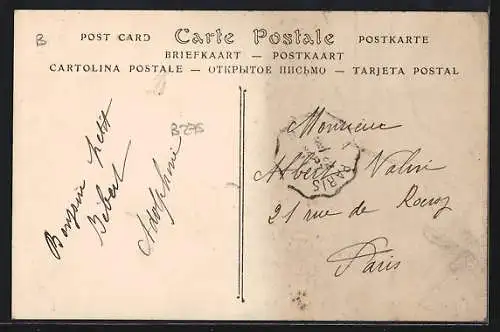 B
POST CARD Carte Postale POSTKARTE
BRIEFKAART — POSTKAART
CARTOLINA POSTALE — ОТКРЫТОЕ ПИСЬМО — TARJETA POSTAL
B275
petit
Bébert
Adolphine
Monsieur
Albert
21 rue de
Paris
PARIS